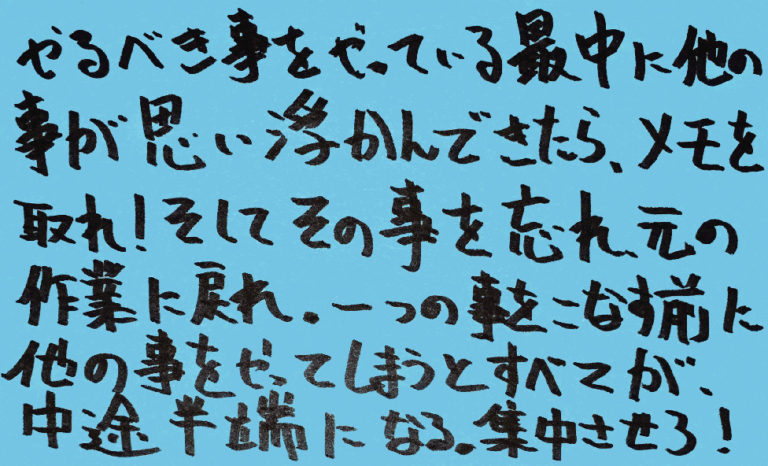 やるべき事をやっている最中に他の
事が思い浮かんできたら、メモを
取れ！そしてその事を忘れ、元の
作業に戻れ。一つの事をこなす前に
他の事をやってしまうとすべてが、
中途半端になる。集中させろ！